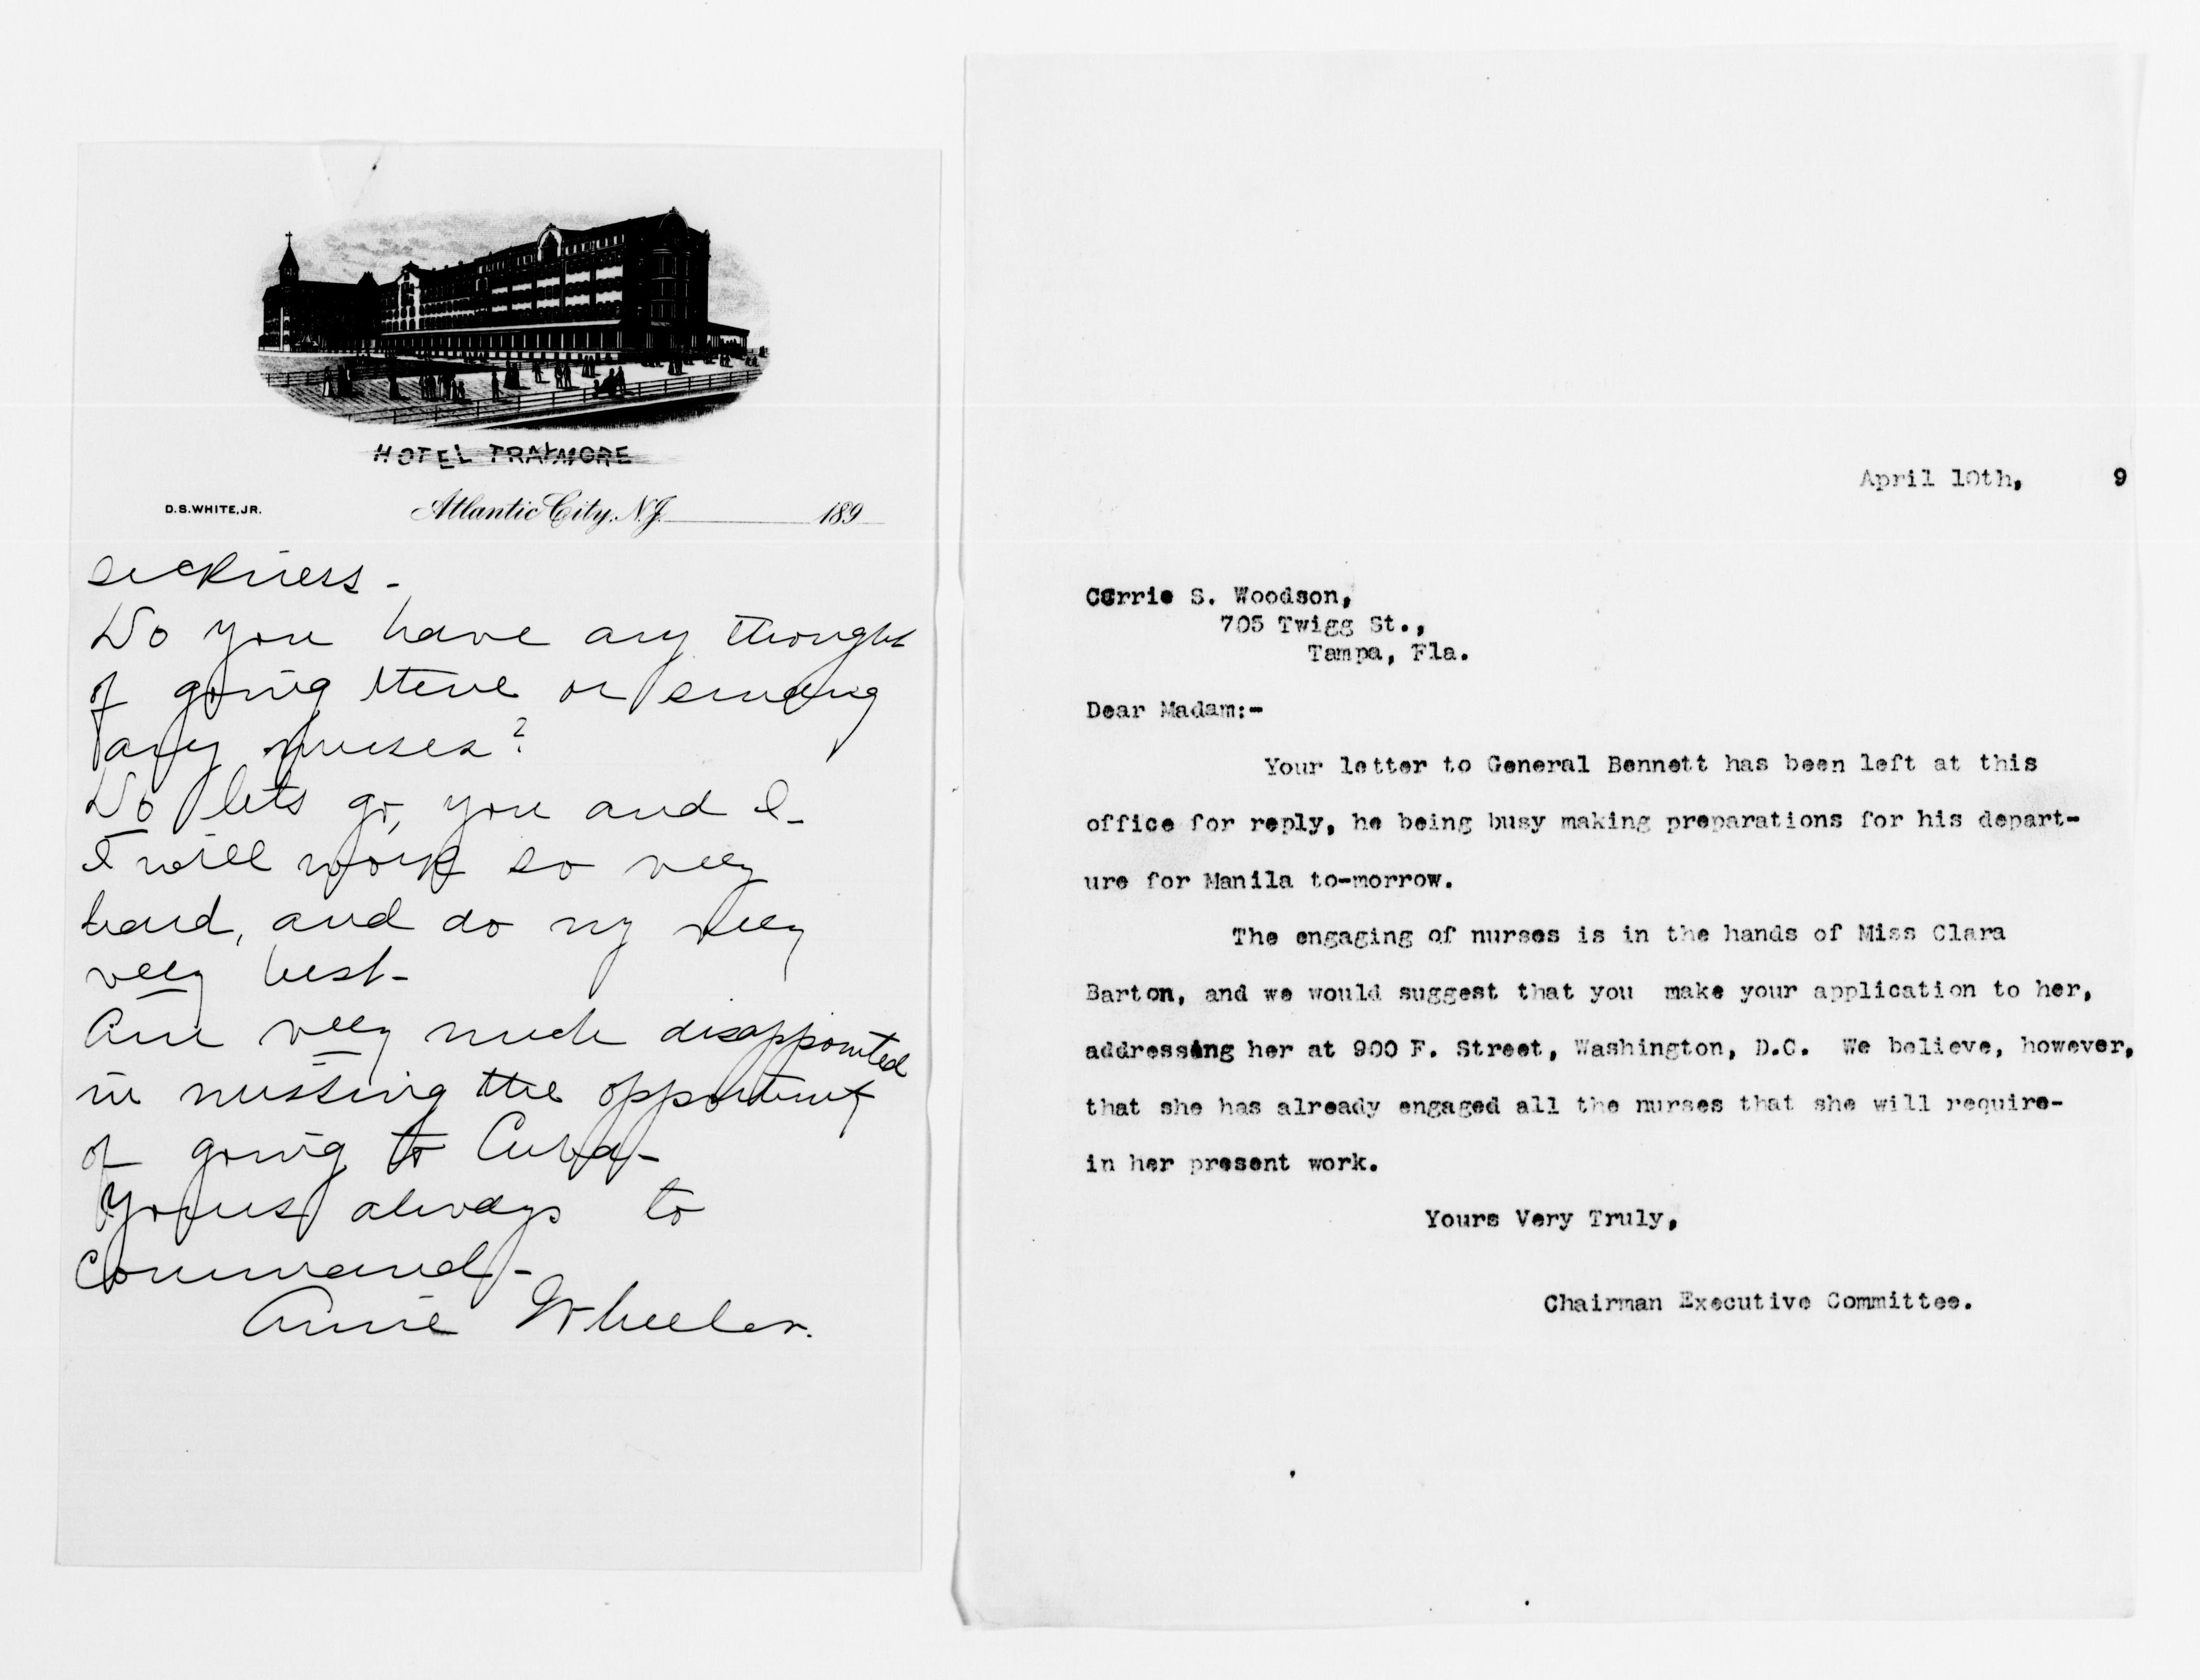 HOTEL TRAYMORE
D.S. WHITE, JR.
Atlantic City, N.J. 189
sickness -
Do you have any thought
of going there or sending
any nurses?
Do lets go, you and I -
I will work so very
hard, and do my very
very best -
Am very much disappointed
in missing the opportunity
of going to Cuba -
Yours always to
Command -
Annie Wheeler.
April 10th, 9
Carrie S. Woodson,
705 Twigg St.,
Tampa, Fla.
Dear Madam:-
Your letter to General Bennett has been left at this
office for reply, he being busy making preparations for his depart-
ure for Manila to-morrow.
The engaging of nurses is in the hands of Miss Clara
Barton, and we would suggest that you make your application to her,
addressing her at 900 F. Street, Washington, D.C. We believe, however,
that she has already engaged all the nurses that she will require-
in her present work.
Yours Very Truly,
Chairman Executive Committee.